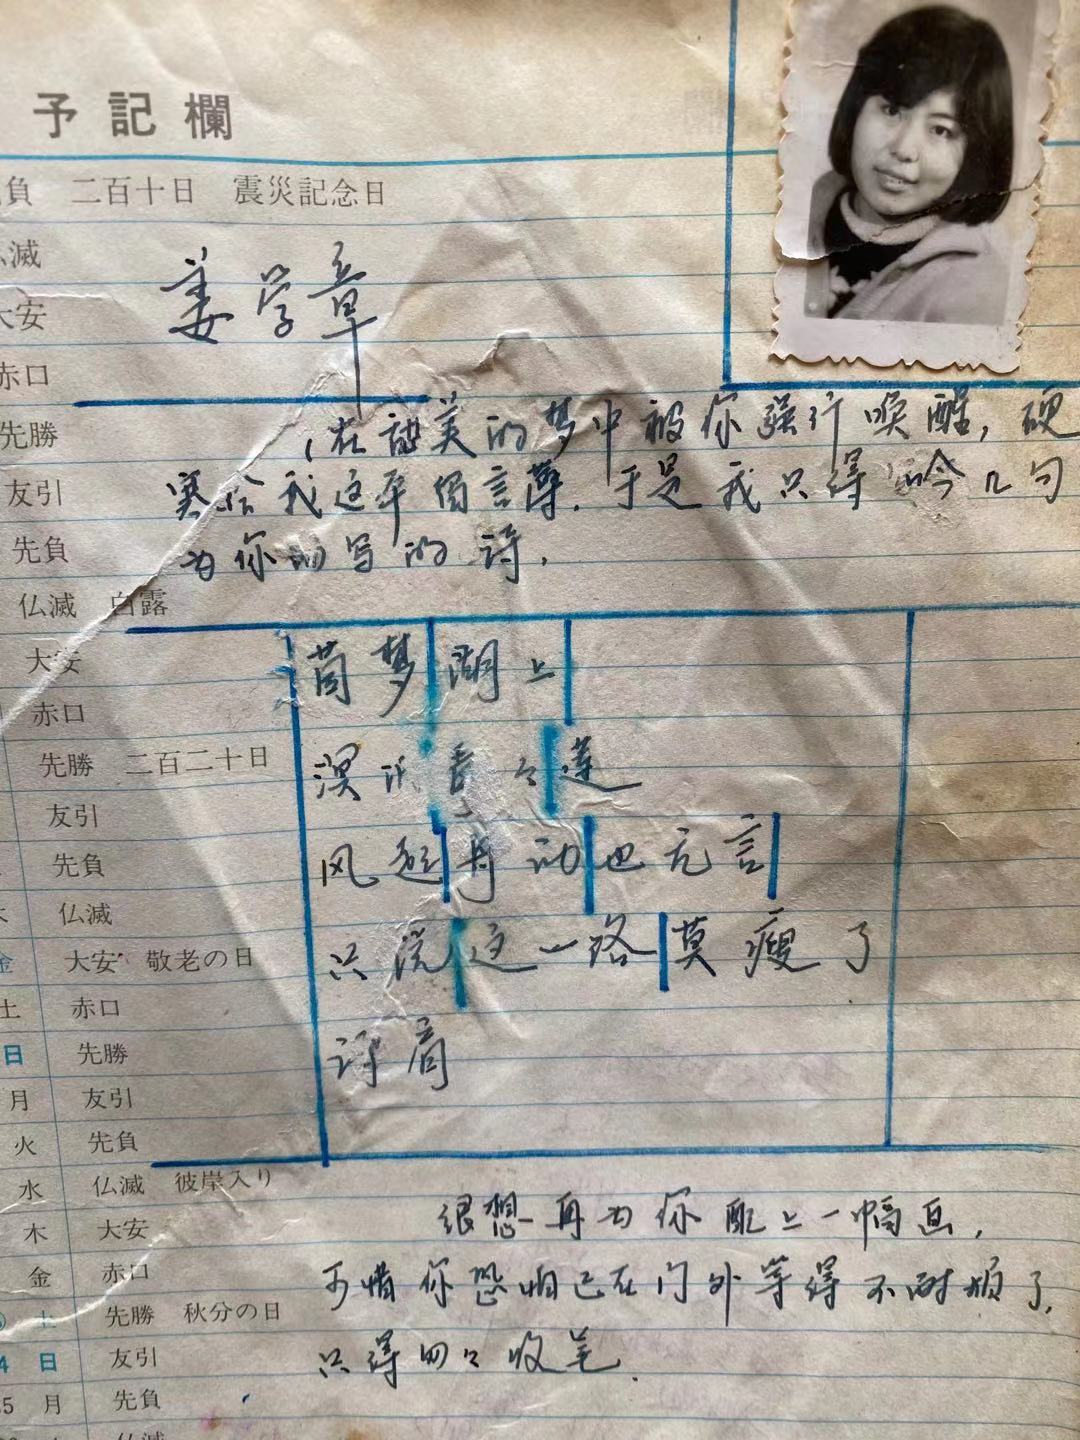 予記欄
負 二百十日 震災記念日
仏滅
大安
赤口
先勝
友引
先負
仏滅 白露
大安
赤口
先勝 二百二十日
友引
先負
仏滅
金 大安 敬老の日
土 赤口
日 先勝
月 友引
火 先負
水 仏滅 彼岸入り
木 大安
金 赤口
土 先勝 秋分の日
4 日 友引
5 月 先負
仏滅
姜学章
在甜美的梦中被你强行唤醒,硬
塞给我这本留言薄.于是我只得吟几句
为你而写的诗.
梦湖上
莲
风起舟动也无言
只说这一路莫瘦了
诗肩
很想再为你配上一幅画,
可惜你恐怕已在门外等得不耐烦了,
只得匆匆收笔.